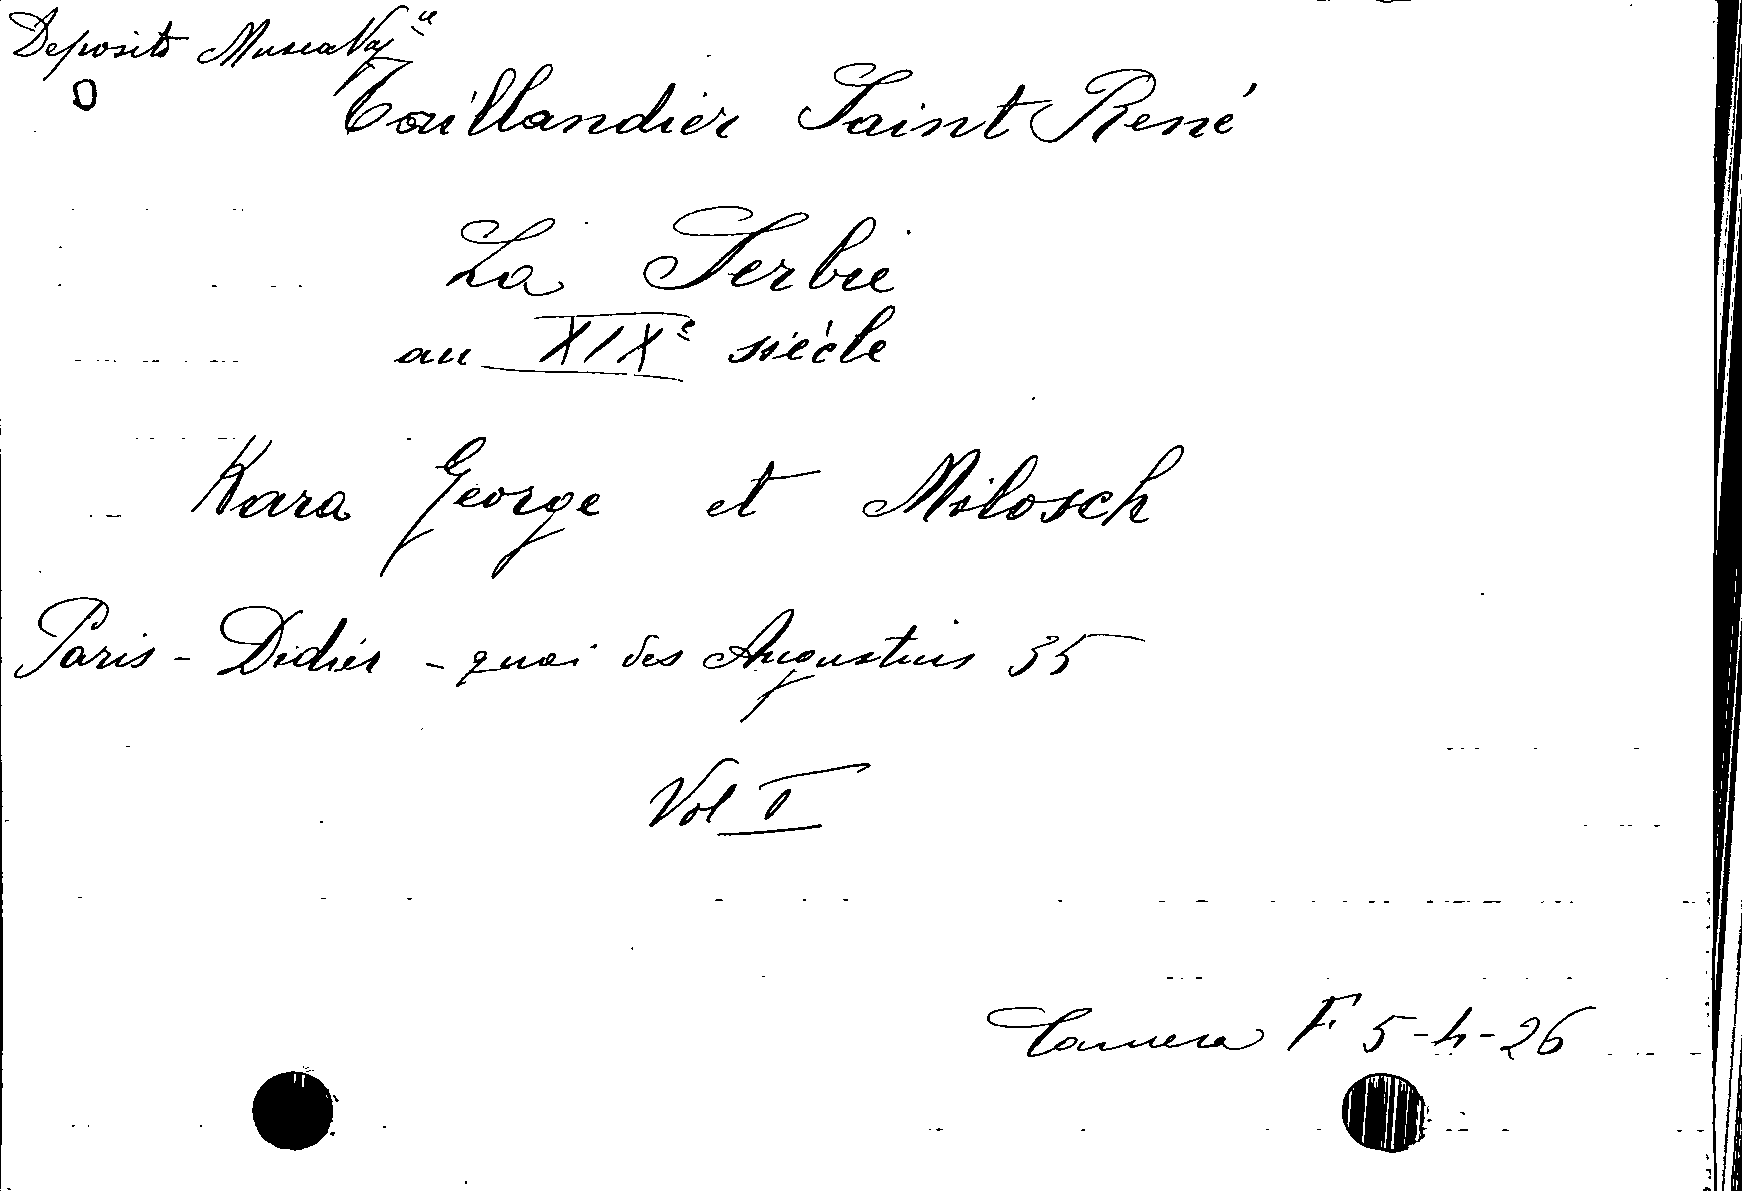 Deposito Musea Naz<sup>le</sup>
O
Taillandier Saint René
La Serbie
au XIXe siècle
Kara George et Milosch
Paris - Didier - quai des Augustins 35
Vol I
Camera F 5-4-26